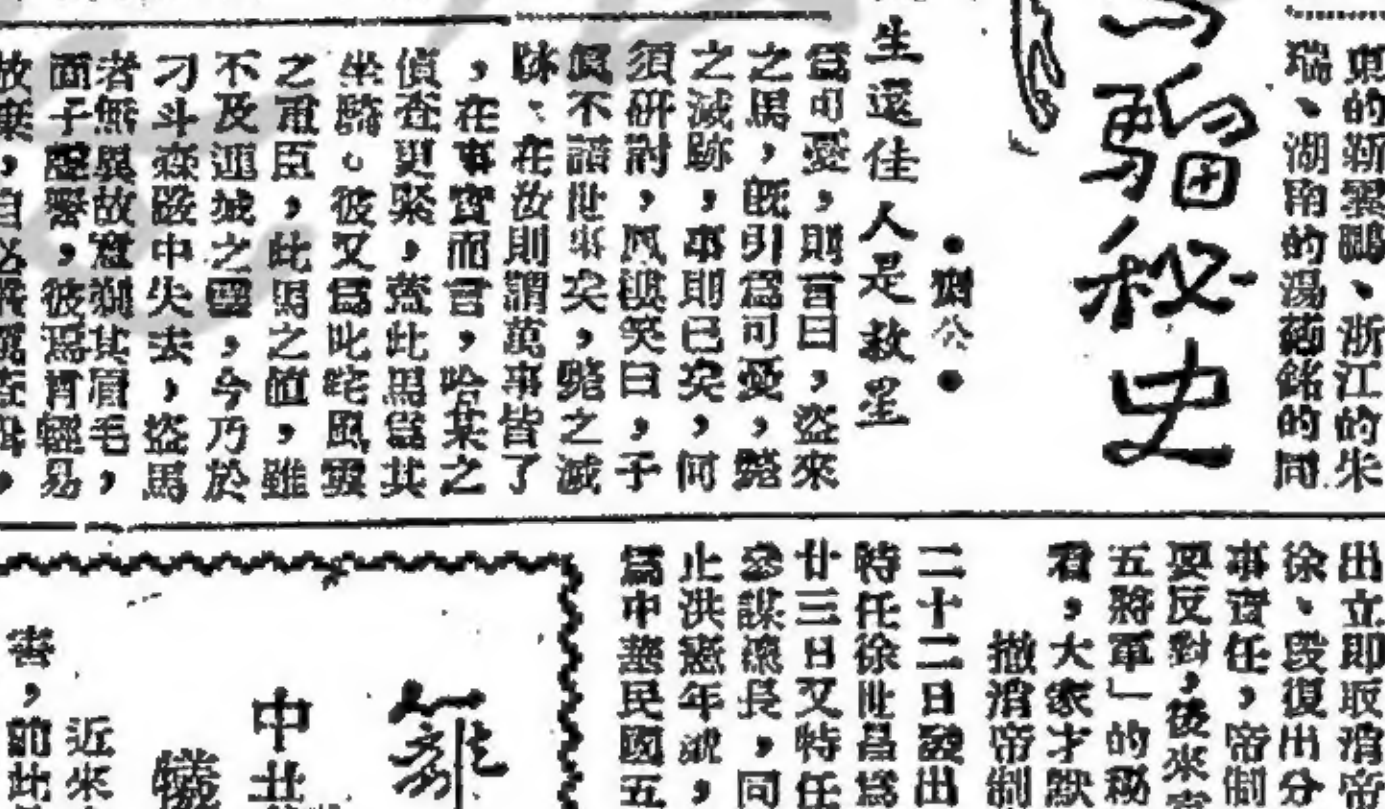 東的靳雲鵬、浙江的朱
瑞、湖南的湯薌銘的同
騮秘史
●劉公●
生還佳人是救星
爲可憂,則言曰,盜來
之馬,既引爲可憂,斃
之滅跡,事則已矣,何
須研討,鳳樓笑曰,子
眞不諳世事矣,斃之滅
跡、在汝則謂萬事皆了
,在事實而言,哈某之
偵查更緊,蓋此馬爲其
坐騎。彼又爲叱咤風雲
之重臣,此馬之値,雖
不及連城之璧,今乃於
刁斗森嚴中失去,盜馬
者無異故意剃其眉毛,
面子聲譽,彼焉肯輕易
放棄,自必
出立即取消帝
徐、段復出分
事責任,帝制
要反對,後來
五將軍」的秘
看,大家才默
撤消帝制
二十二日發出
特任徐世昌爲
廿三日又特任
參謀總長,同
止洪憲年號,
爲中華民國五
中北
近來
害,前此